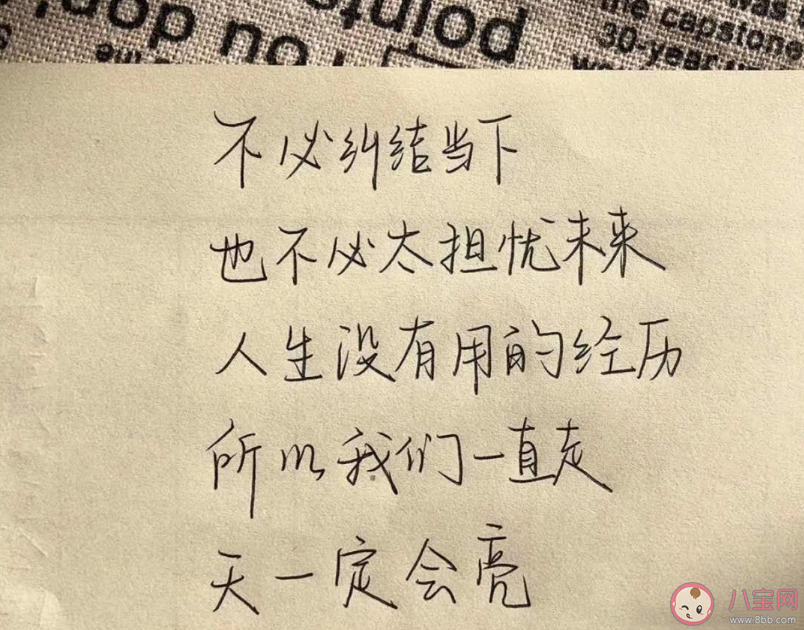 the capstone
30-year
不必纠结当下
也不必太担忧未来
人生没有用的经历
所以我们一直走
天一定会亮
八宝网
www.8bb.com